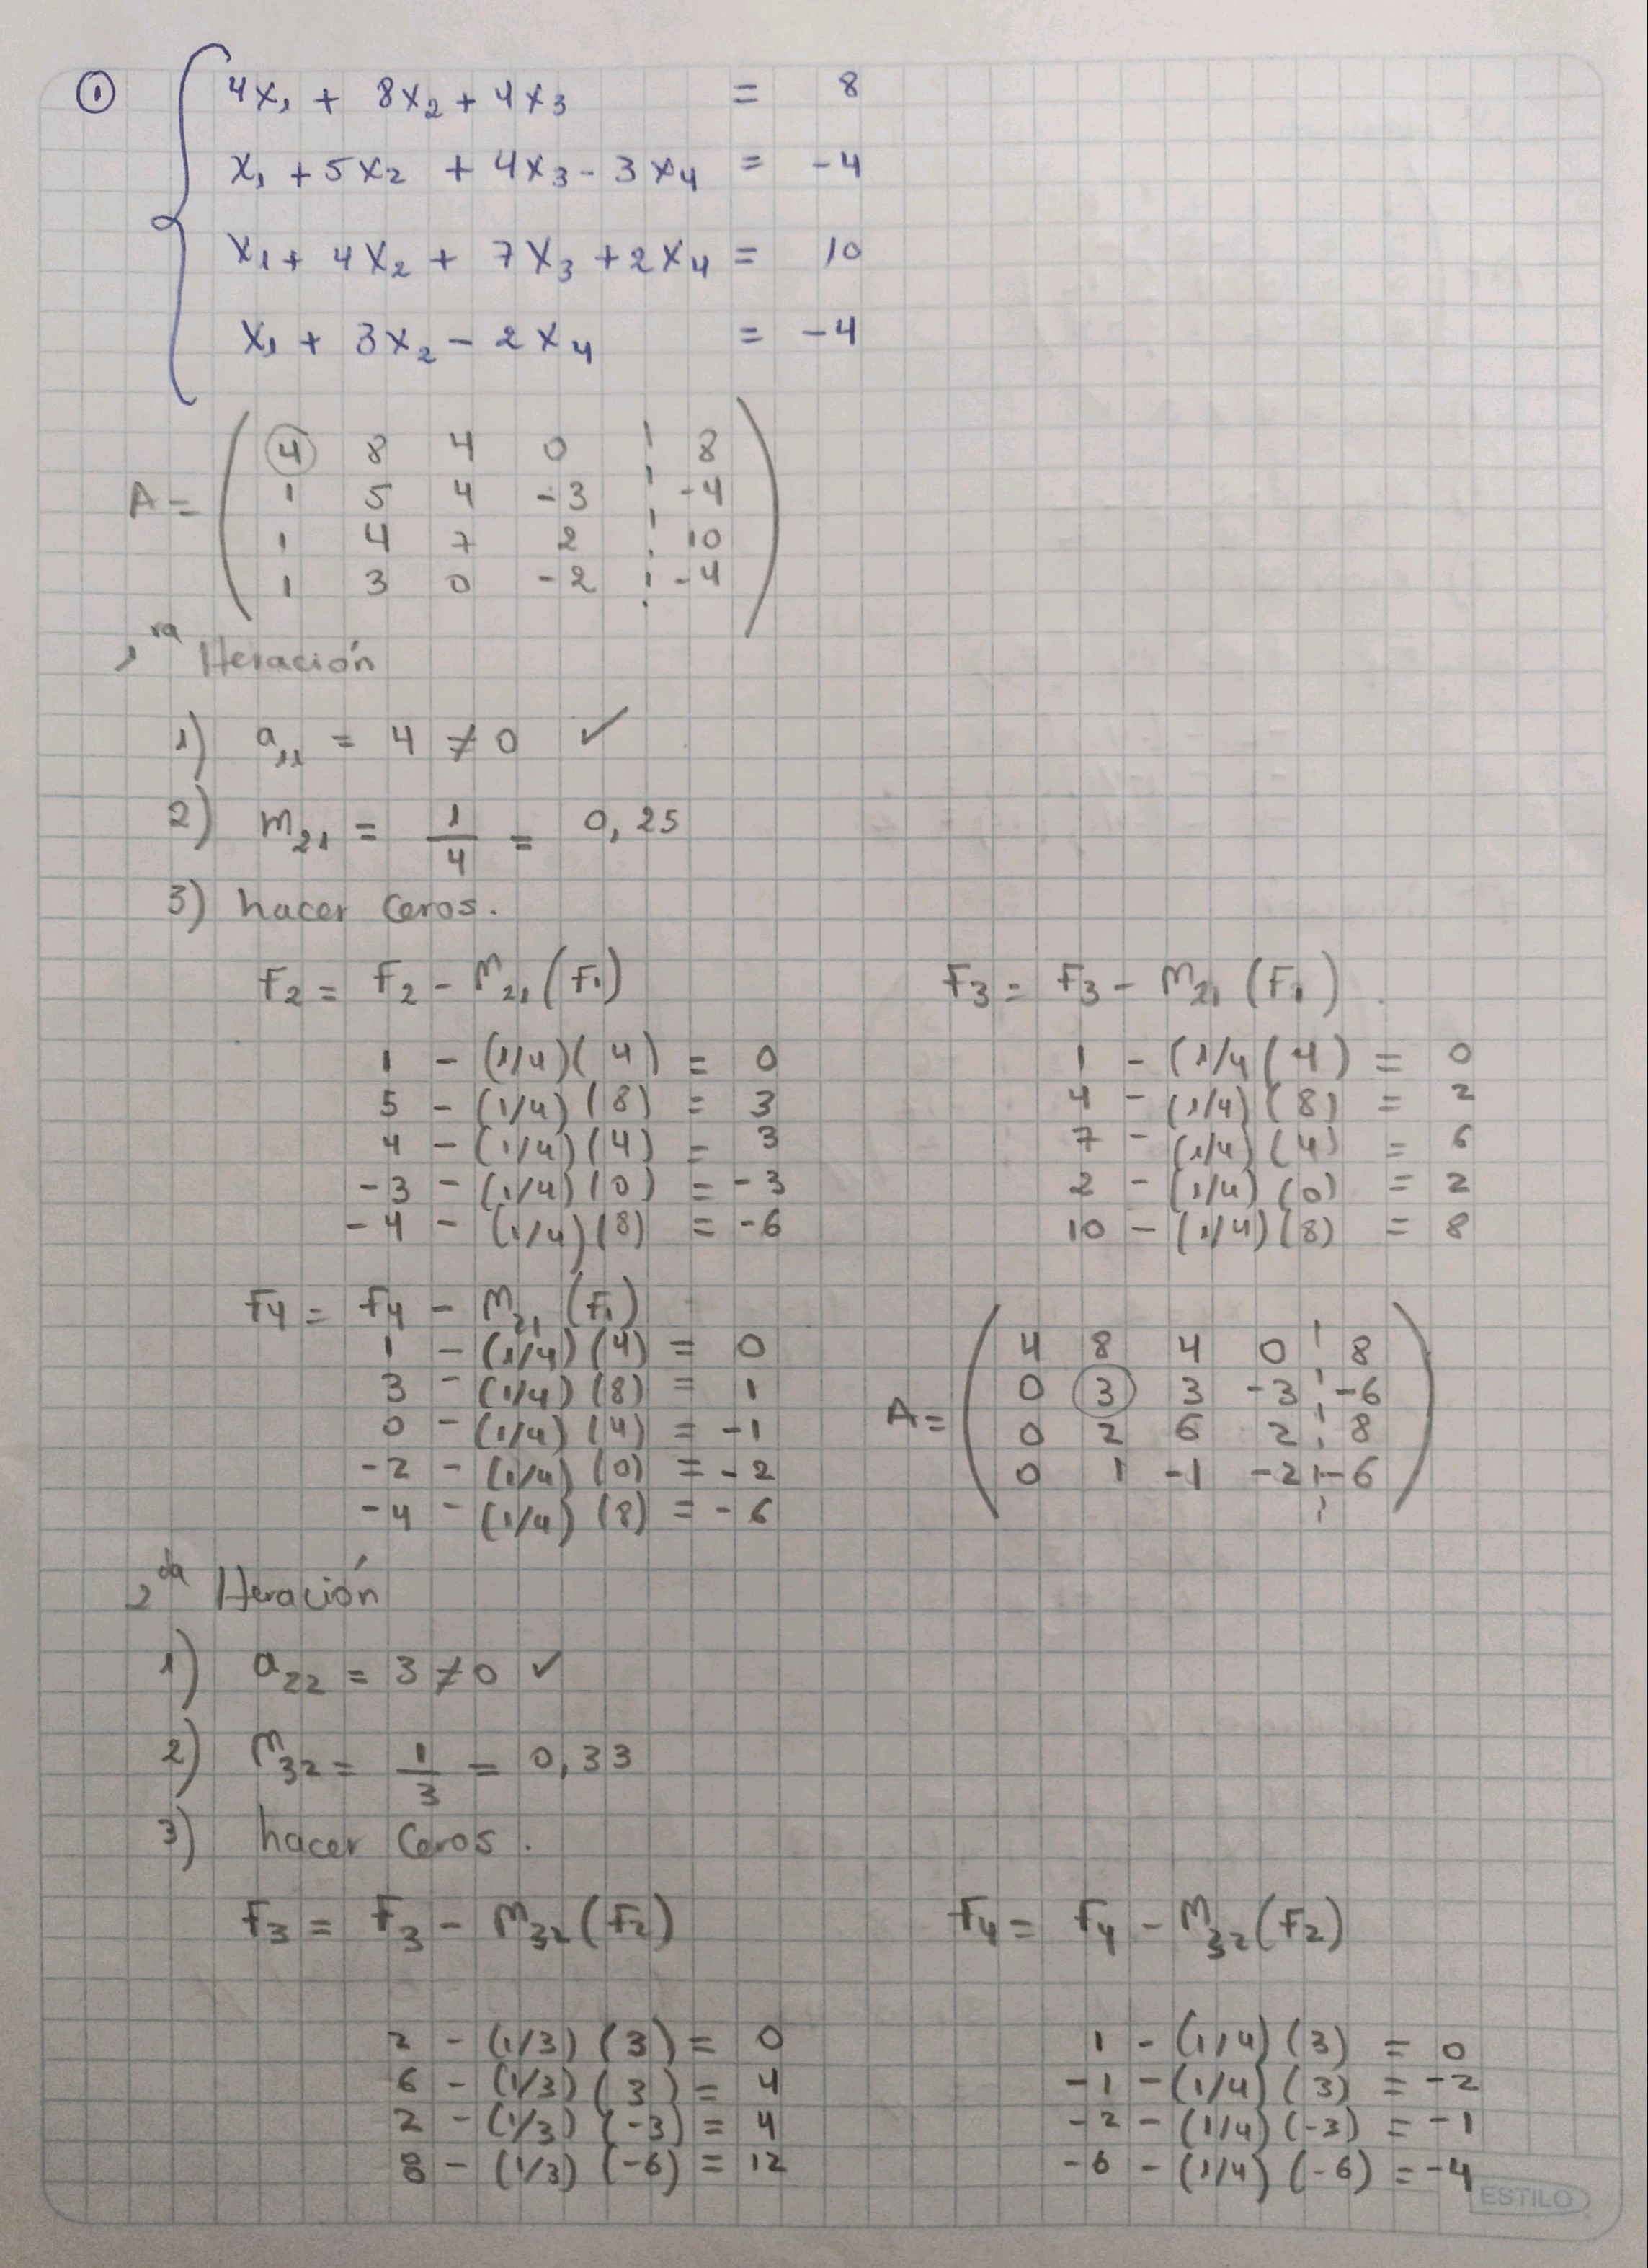 ① 4x₁ + 8x₂ + 4x₃ = 8
x₁ + 5x₂ + 4x₃ - 3x₄ = -4
x₁ + 4x₂ + 7x₃ + 2x₄ = 10
x₁ + 3x₂ - 2x₄ = -4
4 8 4 0 ¦ 8
A = 1 5 4 -3 ¦ -4
1 4 7 2 ¦ 10
1 3 0 -2 ¦ -4
1ra Iteración
1) a₁₁ = 4 ≠ 0 ✓
2) m₂₁ = 1/4 = 0,25
3) hacer ceros.
F₂ = F₂ - m₂₁(F₁)
1 - (1/4)(4) = 0
5 - (1/4)(8) = 3
4 - (1/4)(4) = 3
-3 - (1/4)(0) = -3
-4 - (1/4)(8) = -6
F₃ = F₃ - m₂₁(F₁)
1 - (1/4(4) = 0
4 - (1/4)(8) = 2
7 - (1/4)(4) = 6
2 - (1/4)(0) = 2
10 - (1/4)(8) = 8
F₄ = F₄ - m₂₁(F₁)
1 - (1/4)(4) = 0
3 - (1/4)(8) = 1
0 - (1/4)(4) = -1
-2 - (1/4)(0) = -2
-4 - (1/4)(8) = -6
4 8 4 0 ¦ 8
A = 0 3 3 -3 ¦ -6
0 2 6 2 ¦ 8
0 1 -1 -2 ¦ -6
2da Iteración
1) a₂₂ = 3 ≠ 0 ✓
2) m₃₂ = 1/3 = 0,33
3) hacer ceros.
F₃ = F₃ - m₃₂(F₂)
2 - (1/3)(3) = 0
6 - (1/3)(3) = 4
2 - (1/3)(-3) = 4
8 - (1/3)(-6) = 12
F₄ = F₄ - m₃₂(F₂)
1 - (1/4)(3) = 0
-1 - (1/4)(3) = -2
-2 - (1/4)(-3) = -1
-6 - (1/4)(-6) = -4
ESTILO